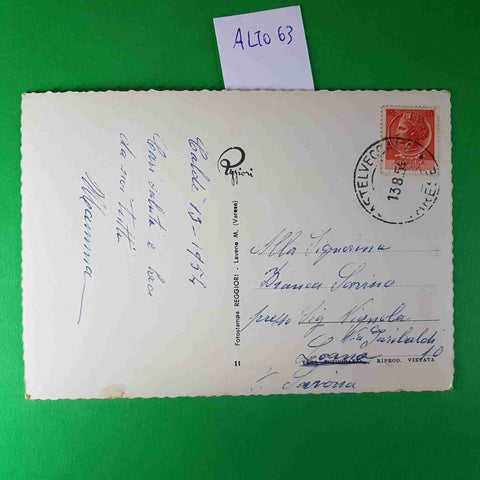 ALTO 63
Caldè 13-1954
Cari saluti e baci
da noi tutti
Mamma
Reggiori
Fotostampa REGGIORI - Laveno M. (Varese)
11
CASTELVECC
13.8.54
VARESE
Alla Signorina
Bianca Sorino
presso Sig Vignola
Via Garibaldi
Loano 10
VERA FOTOGRAFIA RIPROD. VIETATA
Savona